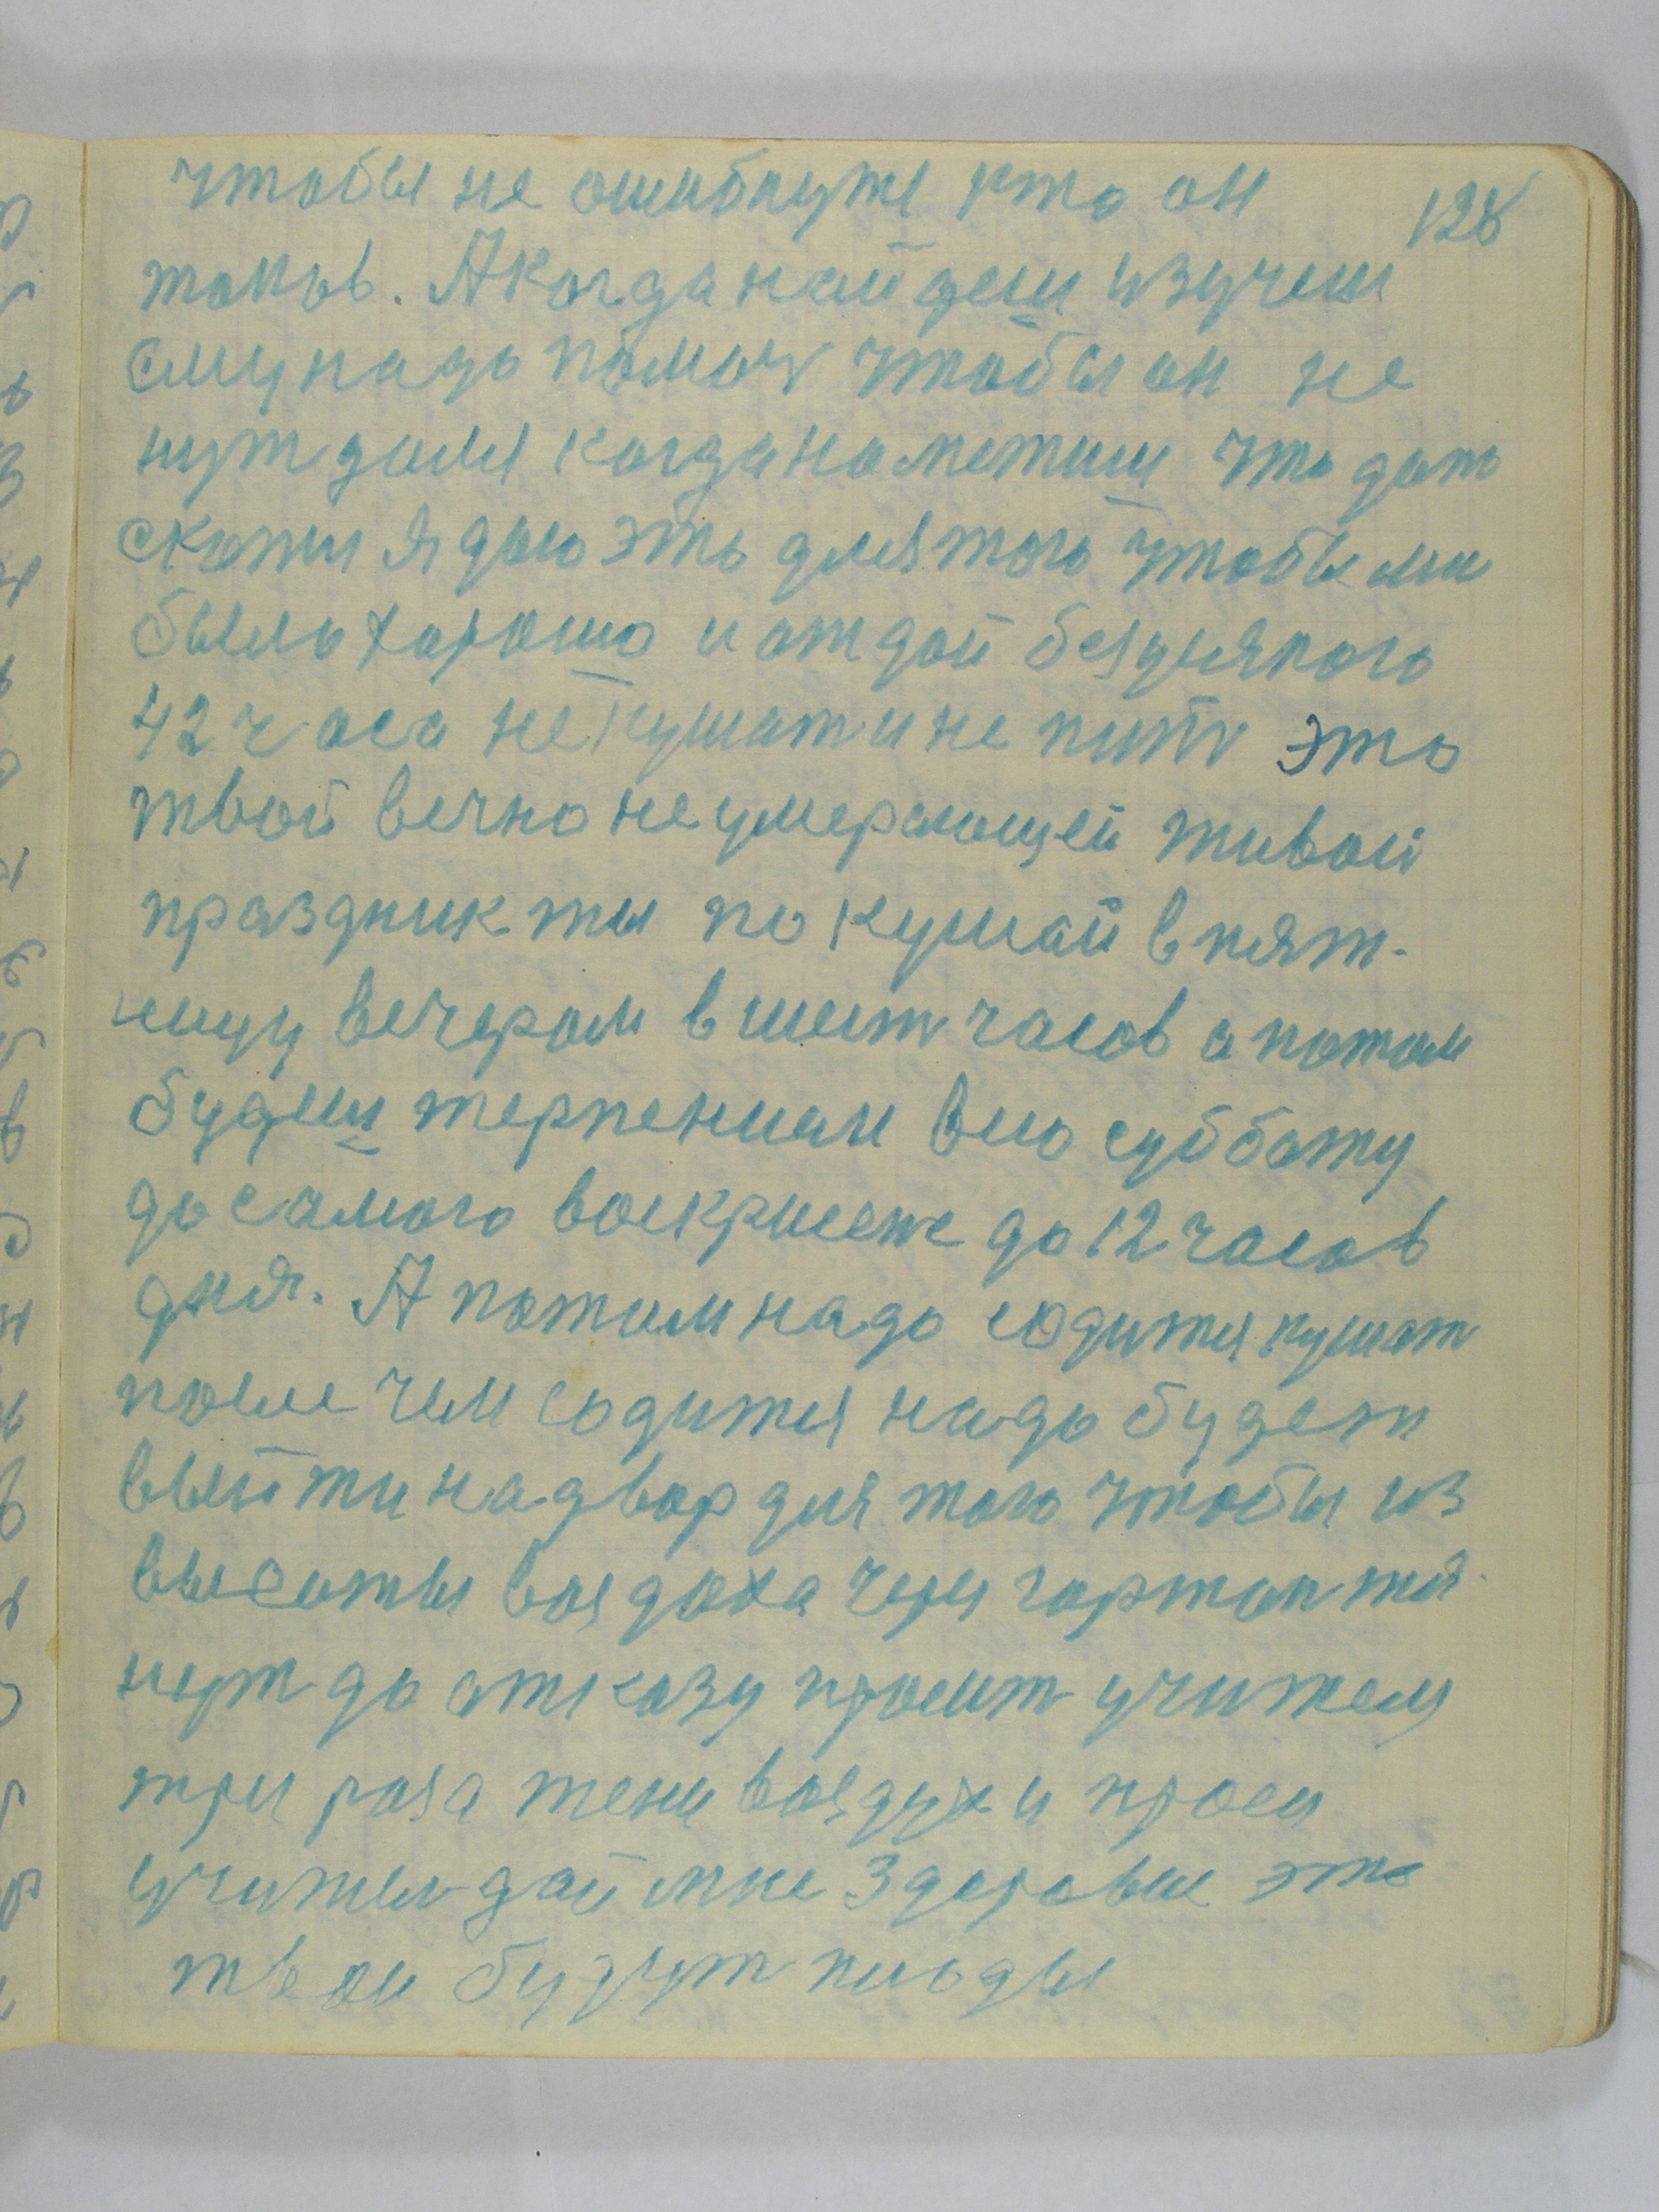 чтобы не ошибнутся кто он
128
таков. А когда найдеш изучеш
ему надо помоч чтобы он не
нуждался когда наметиш что дать
скажи я даю это для того чтобы мн
было хорошо и отдай без унякого
42 часа не кушат и не пить это
твой вечно неумерающей живой
праздник ты покушай в пят-
ницу вечером в шесть часов а потом
будеш терпениам всю субботу
до самого воскрисеже до 12 часов
дня. А потом надо содится кушат
после чем содится надо будет
выйти надвор для того чтобы из
высоты воздоха через гортан тя-
нут до отказу просит учителя
три раза тени воздух и проси
учитель дай мне здоровье это
твои будут плоды